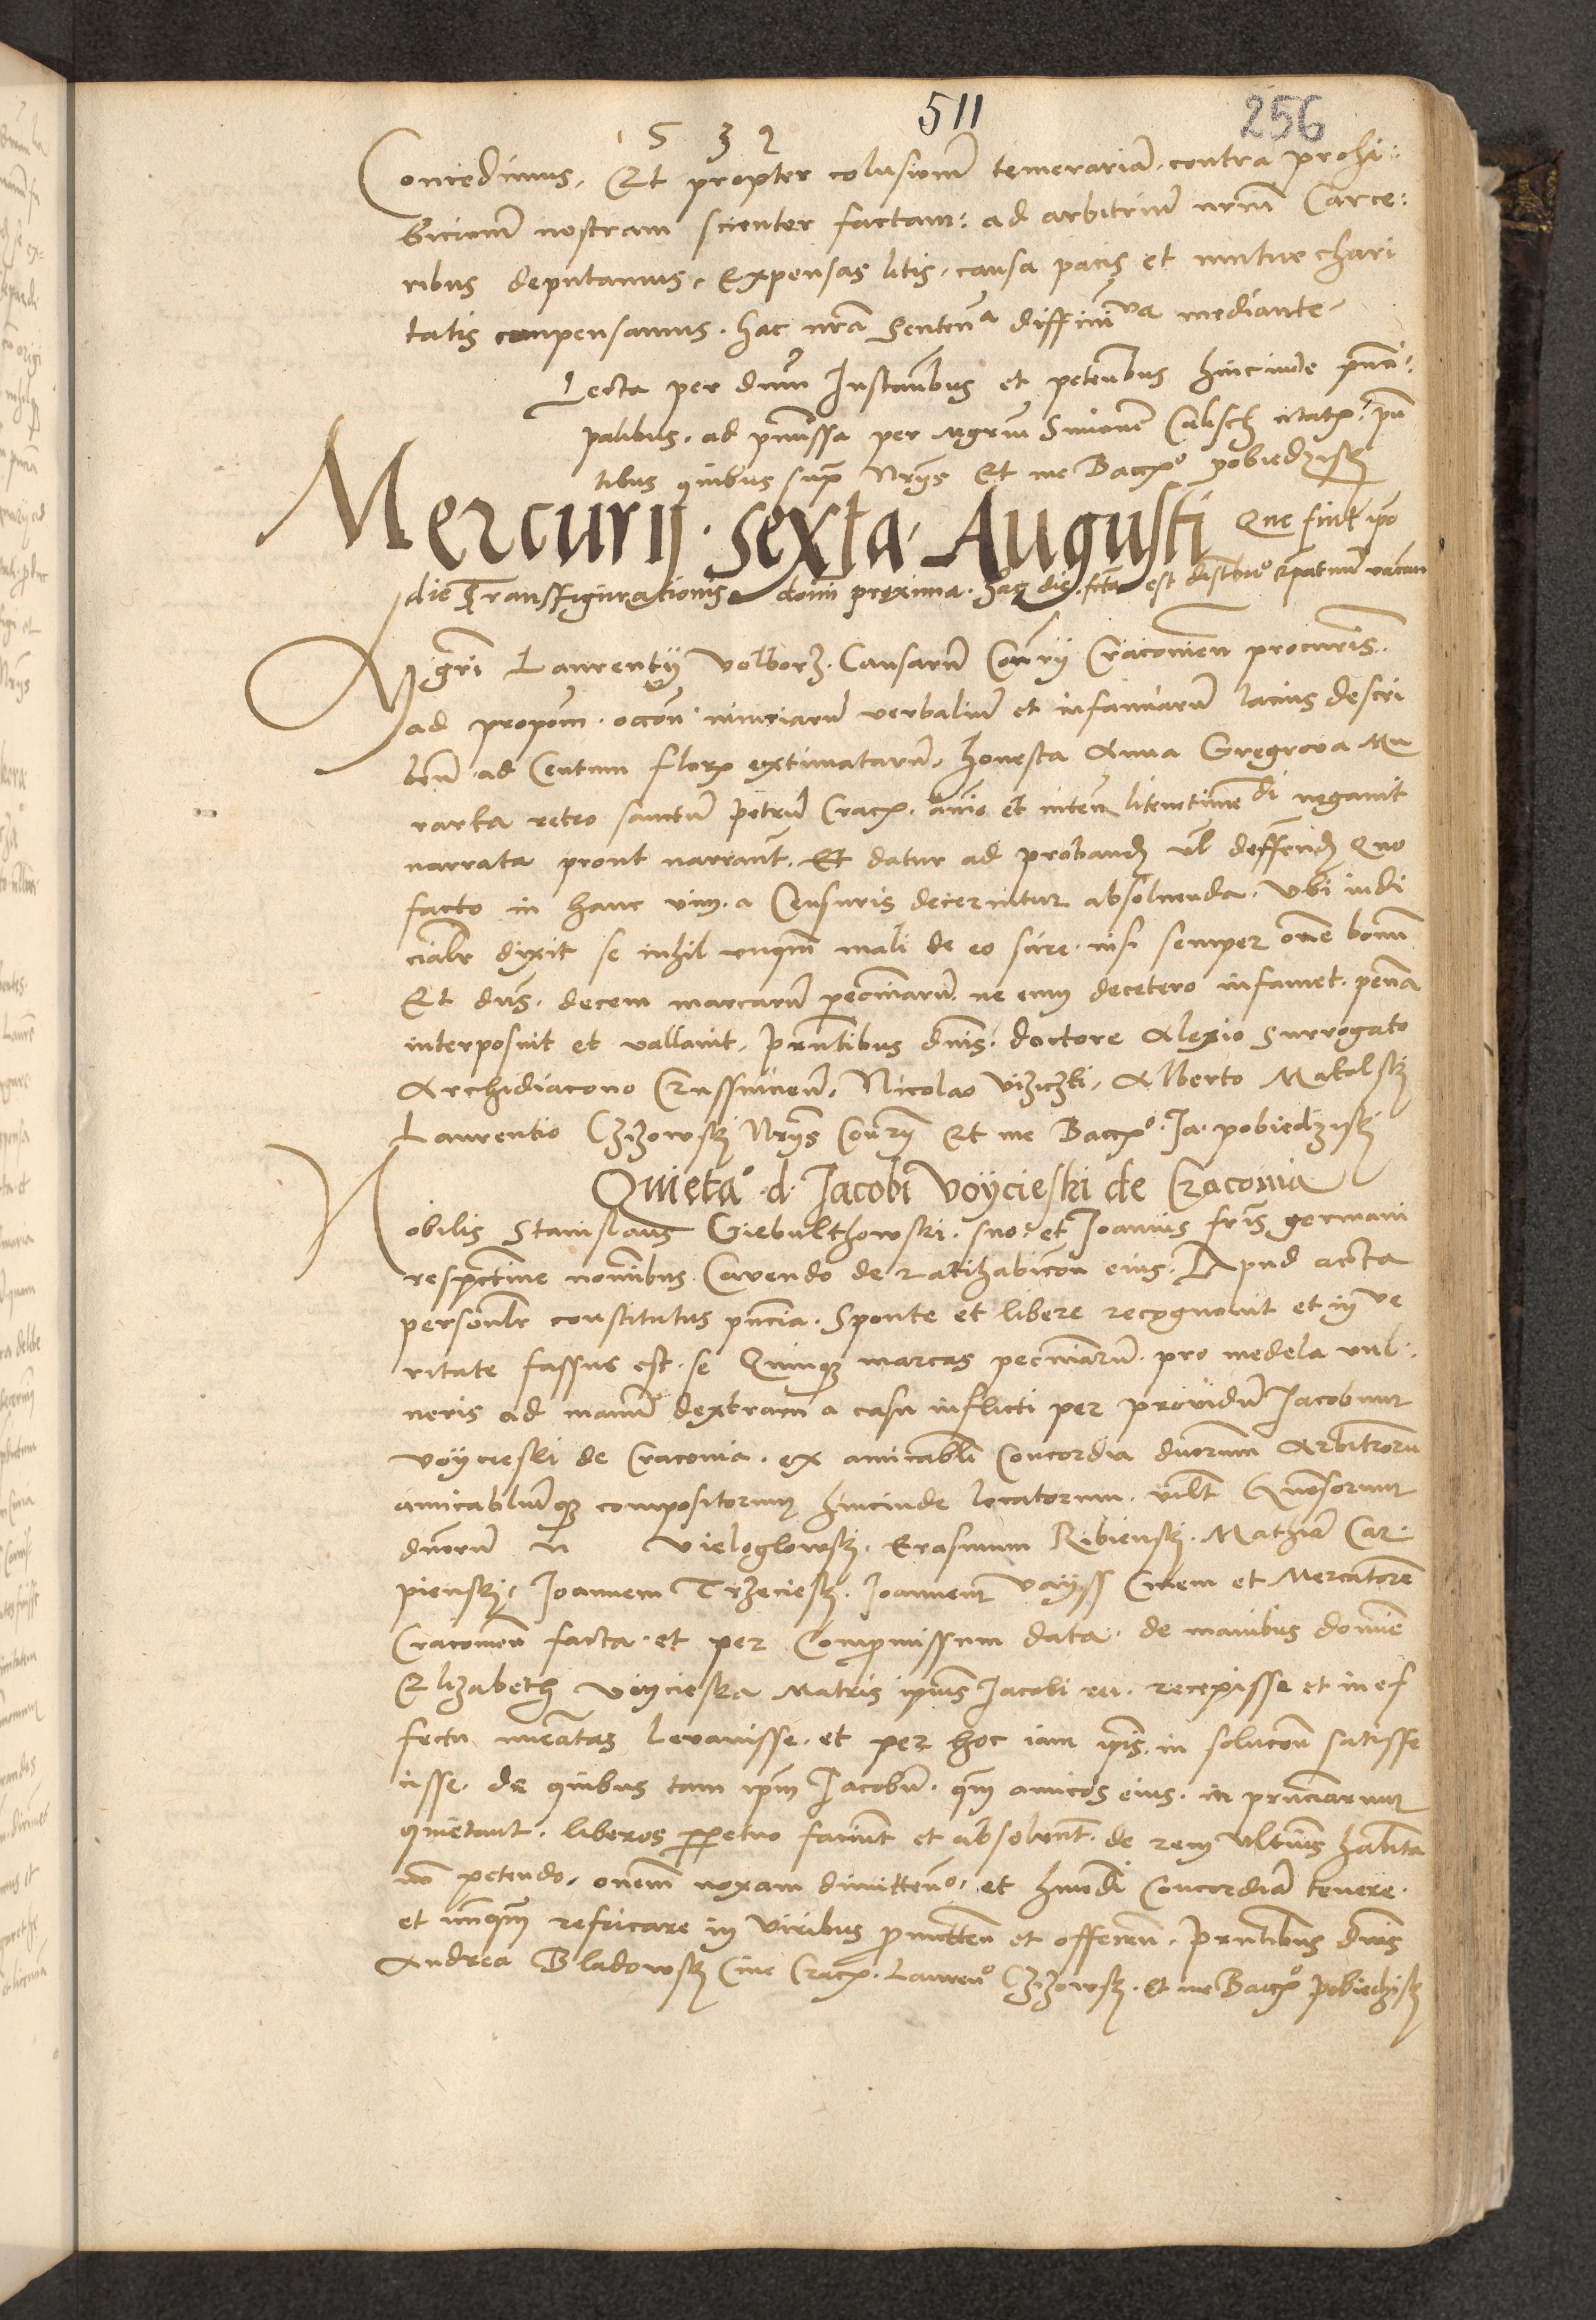 511 256
1 5 3 2
Concedimus. Et propter colusionē temerariā contra prohi:
bicionē nostram scienter factam: ad arbitriū nrm̄ Carce:
ribus deputamus. Expensas litis, causa pacis et mutue chari
tatis compensamus. hac nrā Sentenā diffiniva mediante.
Lecta per dnm̄ Instantibus et petentibus hincinde prnci:
palibus. ad prmissa per Mgrm̄ Simonē Calisch citatꝭ. pn
tibus quibus supra Nrys Et me Baccꝭo pobiedzisky
Mercurij. Sexta. Augusti Que fuit ipo
die Transfigurationis domi proxima. hac die fcta est
Mgri Laurentij Volborz. Causarū Conrij Cracovien procuris.
ad propom. accōn iniuriarū verbaliū et infamiarū latius descri
ben̄ ad Centum florꝭ extimatarū. honesta Anna Gregrova Mu
rarka retro sanctū Petrū Cracꝭ. anīo et inten̄ litemtimendi negavit
narrata prout narrant. Et datur ad probandꝫ vl deffendꝫ Quo
facto in hanc vim. a Censuris decernitur absolvenda. Vbi iudi
cialr̄ dixit se nihil vnqm̄ mali de eo scire. nisi semper om̄e bonū
Et dns. decem marcarū pecuniarū. ne eum decetero infamet. pena
interposuit et vallavit. Prntibus dnis. doctore Alexio Surrogato
Archidiacono Crussvicen̄. Nicolao Viziczki. Alberto Makolsky
Laurentio Czizowsky Nrys Conrij Et me Baccꝭo. Ja. pobiedzisky
Quieta͡o d. Jacobi Voÿcieski de Cracovia
Nobilis Stanislaus Giebulthowski. suo et Joannis fris germani
respective nominibus. Cavendo de ratihabicōn eius. Apud acta
personlr̄ constitutus pncia. Sponte et libere recognovit et in ve
ritate fassus est. se Quinqꝫ marcas pecuniarū. pro medela vul:
neris ad manū dextram a casu inflicti per providū Jacobum
Voÿcieski de Cracovia. ex amicabli Concordia duorum Arbitrorū
amicabliūqꝫ compositorum hincinde locatorum. vidlt Gn̄osorum
dnorū N Vieloglowsky. Erasmum Ribiensky. Mathiā Car
piensky. Joannem Trzeciesky. Joannem Vaÿss Civem et Mercatorē
Cracovien̄ facta. et per Comprmissum data. de manibus domīe
Elizabeth Voÿcieska Matris ipius Jacobi rei. recepisse et in ef
fectu numeratas levavisse. et per hoc iam ipis. in solucōn satisfe
cisse. de quibus tam ipm Jacobū. qm̄ amicos eius. in prnciarum
quietant. liberos perpetuo faciunt et absolvent. de rem vlterius habita
nō petendo. omnem noxam dimitten̄o. et hmōdi Concordiā tenere.
et nunqm̄ refricare in viribus prmitten̄ et offeren̄. Prntibus dnis
Andrea Bladowsky Cive Cracꝭ. Lauren̄o Czizowsky. Et me Baccꝭo Pobiedzisky